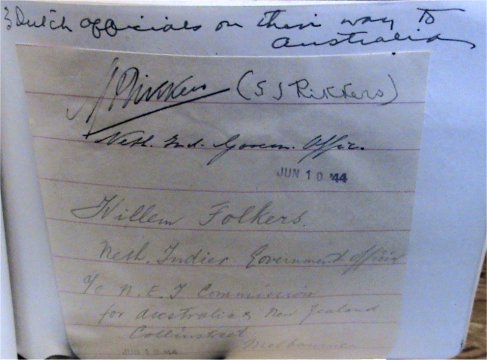 3 Dutch officials on their way to
Australia
SJ Rikkers (S J Rikkers)
Neth. Ind. Govern. Offic.
JUN 10 '44
Willem Folkers.
Neth. Indies Government official
c/o N.E.I Commission
for Australia & New Zealand
Collinstreet
Melbourne
JUN 10 '44